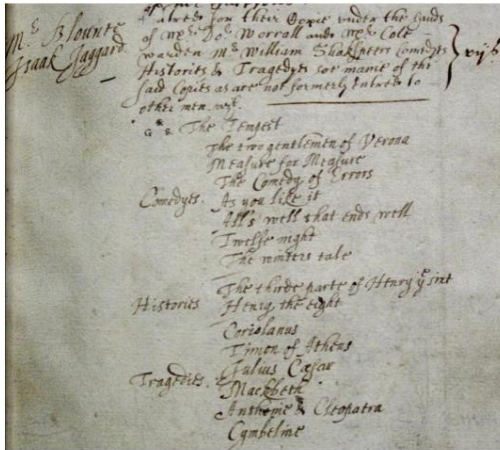 Mr Blounte
Isaak Jaggard.
Entred for their Copie vnder the hands
of Mr Do. Worrall and Mr Cole
warden Mr William Shakspeers Comedyes
Histories & Tragedyes soe manie of the
said Copies as are not formerly entred to
other men. vizt.
vijs
The Tempest
The two gentlemen of Verona
Measure for Measure
The Comedy of Errors
Comedyes. As you like it
All's well that ends well
Twelfe night
The winters tale
The thirde parte of Henry ye sixt
Histories Henry the eight
Coriolanus
Timon of Athens
Julius Cæsar
Tragedies. Mackbeth
Anthonie & Cleopatra
Cymbeline